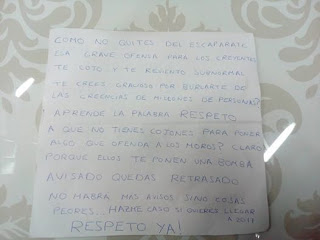 COMO NO QUITES DEL ESCAPARATE
ESA GRAVE OFENSA PARA LOS CREYENTES
TE COJO Y TE REVIENTO SUBNORMAL
TE CREES GRACIOSO POR BURLARTE DE
LAS CREENCIAS DE MILLONES DE PERSONAS?
APRENDE LA PALABRA RESPETO
A QUE NO TIENES COJONES PARA PONER
ALGO QUE OFENDA A LOS MOROS? CLARO
PORQUE ELLOS TE PONEN UNA BOMBA
AVISADO QUEDAS RETRASADO
NO HABRA MAS AVISOS SINO COSAS
PEORES.. HAZME CASO SI QUIERES LLEGAR
A 2017
RESPETO YA!